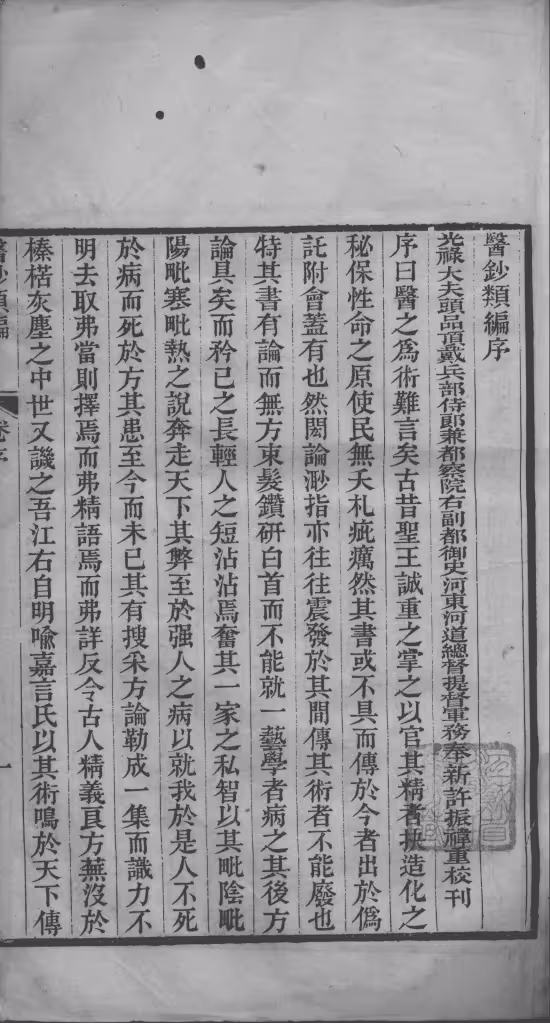 醫鈔類編序
光祿大夫頭品頂戴兵部侍郎兼都察院右副都御史河東河道總督提督軍務奉新許振禕重校刊
序曰醫之爲術難言矣古昔聖王誠重之掌之以官其精者執造化之
秘保性命之原使民無夭札疵癘然其書或不具而傳於今者出於僞
託附會蓋有也然閎論渺指亦往往震發於其間傳其術者不能廢也
特其書有論而無方束髮鑽研白首而不能就一藝學者病之其後方
論具矣而矜己之長輕人之短沾沾焉奮其一家之私智以其毗陰毗
陽毗寒毗熱之說奔走天下其弊至於强人之病以就我於是人不死
於病而死於方其患至今而未已其有搜采方論勒成一集而識力不
明去取弗當則擇焉而弗精語焉而弗詳反令古人精義良方蕪沒於
榛楛灰塵之中世又譏之吾江右自明喻嘉言氏以其術鳴於天下傳
醫鈔類編
卷序
一